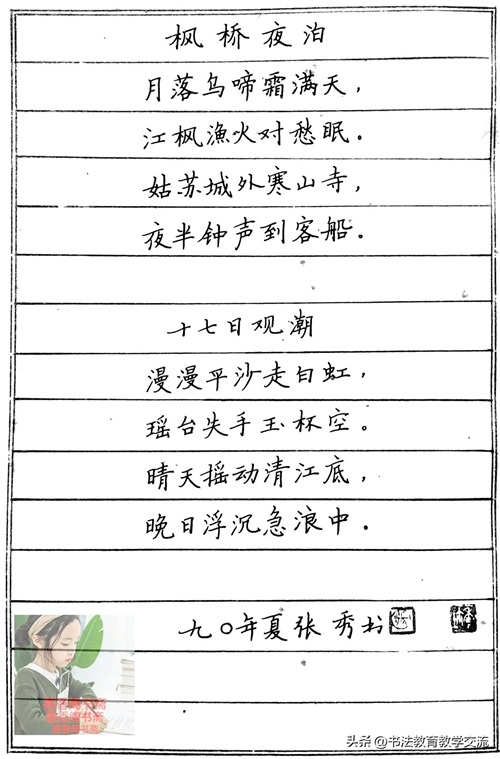 枫桥夜泊
月落乌啼霜满天，
江枫渔火对愁眠。
姑苏城外寒山寺，
夜半钟声到客船。
十七日观潮
漫漫平沙走白虹，
瑶台失手玉杯空。
晴天摇动清江底，
晚日浮沉急浪中。
九〇年夏张秀书
头条 @书法教育教学交流